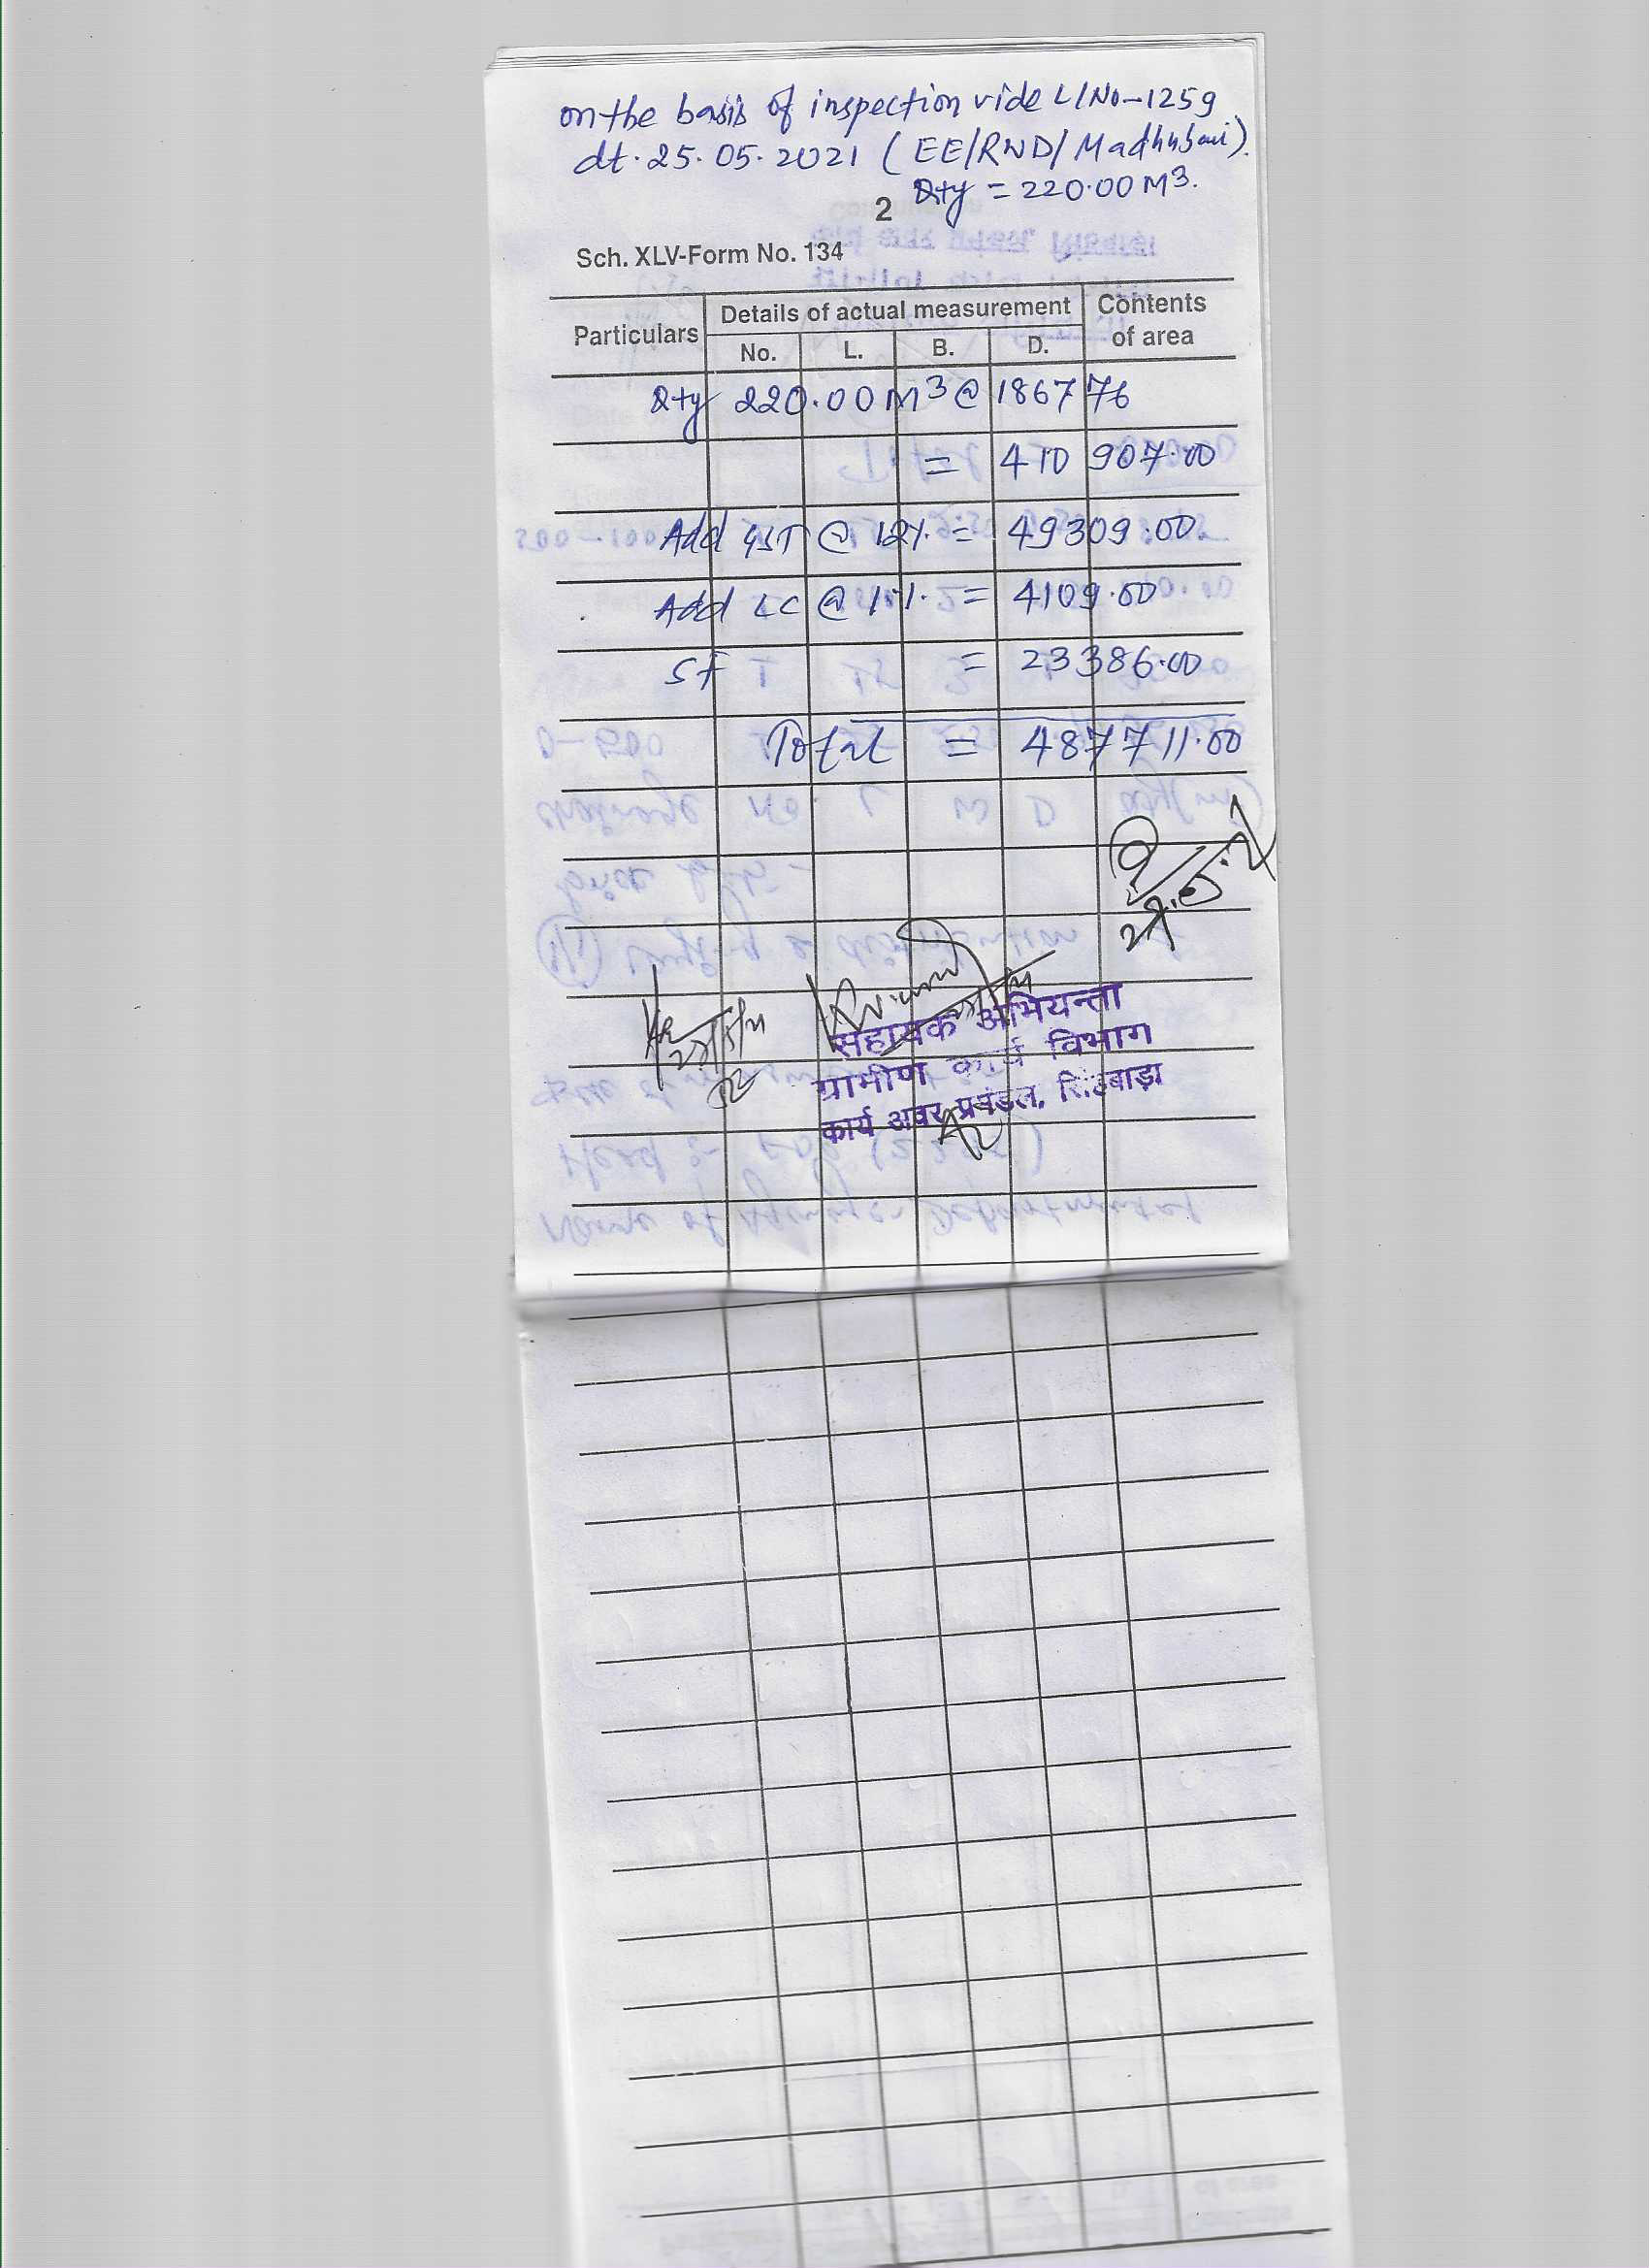 on the basis of inspection vide L/No-1259
dt. 25.05.2021 (EE/RWD/Madhubani).
Qty = 220.00 M3.
2
Sch. XLV-Form No. 134
Particulars Details of actual measurement Contents of area
No. L. B. D.
Qty 220.00 M3 @ 1867 76
= 410 907.00
Add GST @ 12%. = 49309.00
Add LC @ 1%. = 4109.00
SF = 23386.00
Total = 487711.00
सहायक अभियन्ता
ग्रामीण कार्य विभाग
कार्य अवर प्रमंडल, सिंहवाड़ा